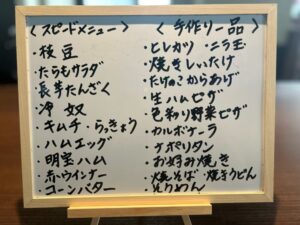 〈スピードメニュー〉
・枝豆
・たらもサラダ
・長芋たんざく
・冷奴
・キムチ・らっきょう
・ハムエッグ
・明宝ハム
・赤ウインナー
・コーンバター
〈手作り一品〉
・ヒレカツ ・ニラ玉
・焼きしいたけ
・たけのこからあげ
・生ハムピザ
・色彩り野菜ピザ
・カルボナーラ
・ナポリタン
・お好み焼き
・焼そば・焼きうどん
・そうめん